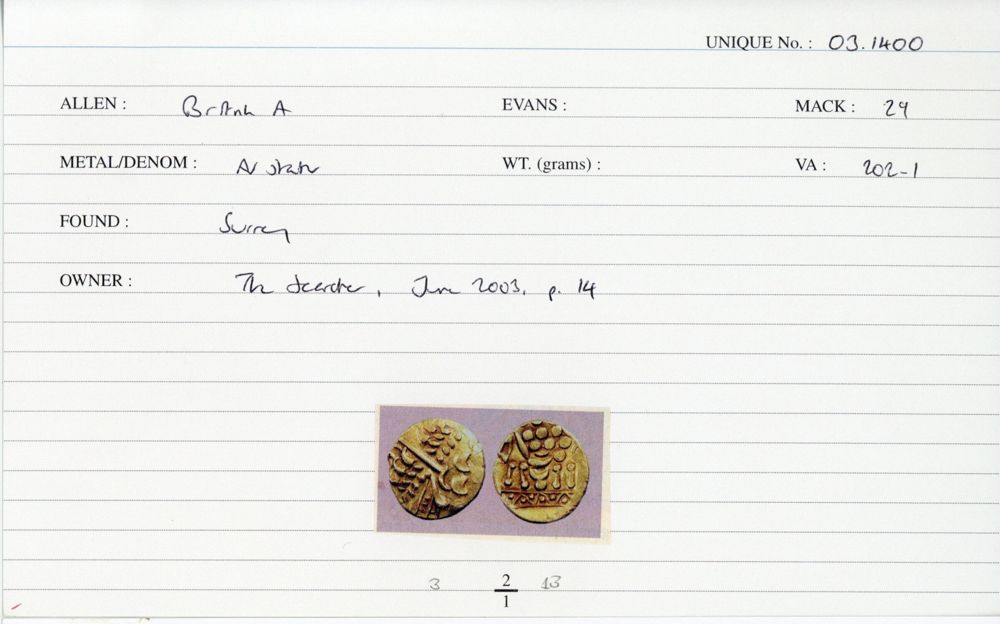 UNIQUE No. : 03.1400
ALLEN : British A EVANS : MACK : 29
METAL/DENOM : AV stater WT. (grams) : VA : 202-1
FOUND : Surrey
OWNER : The Searcher, June 2003, p. 14
3 2 13
1